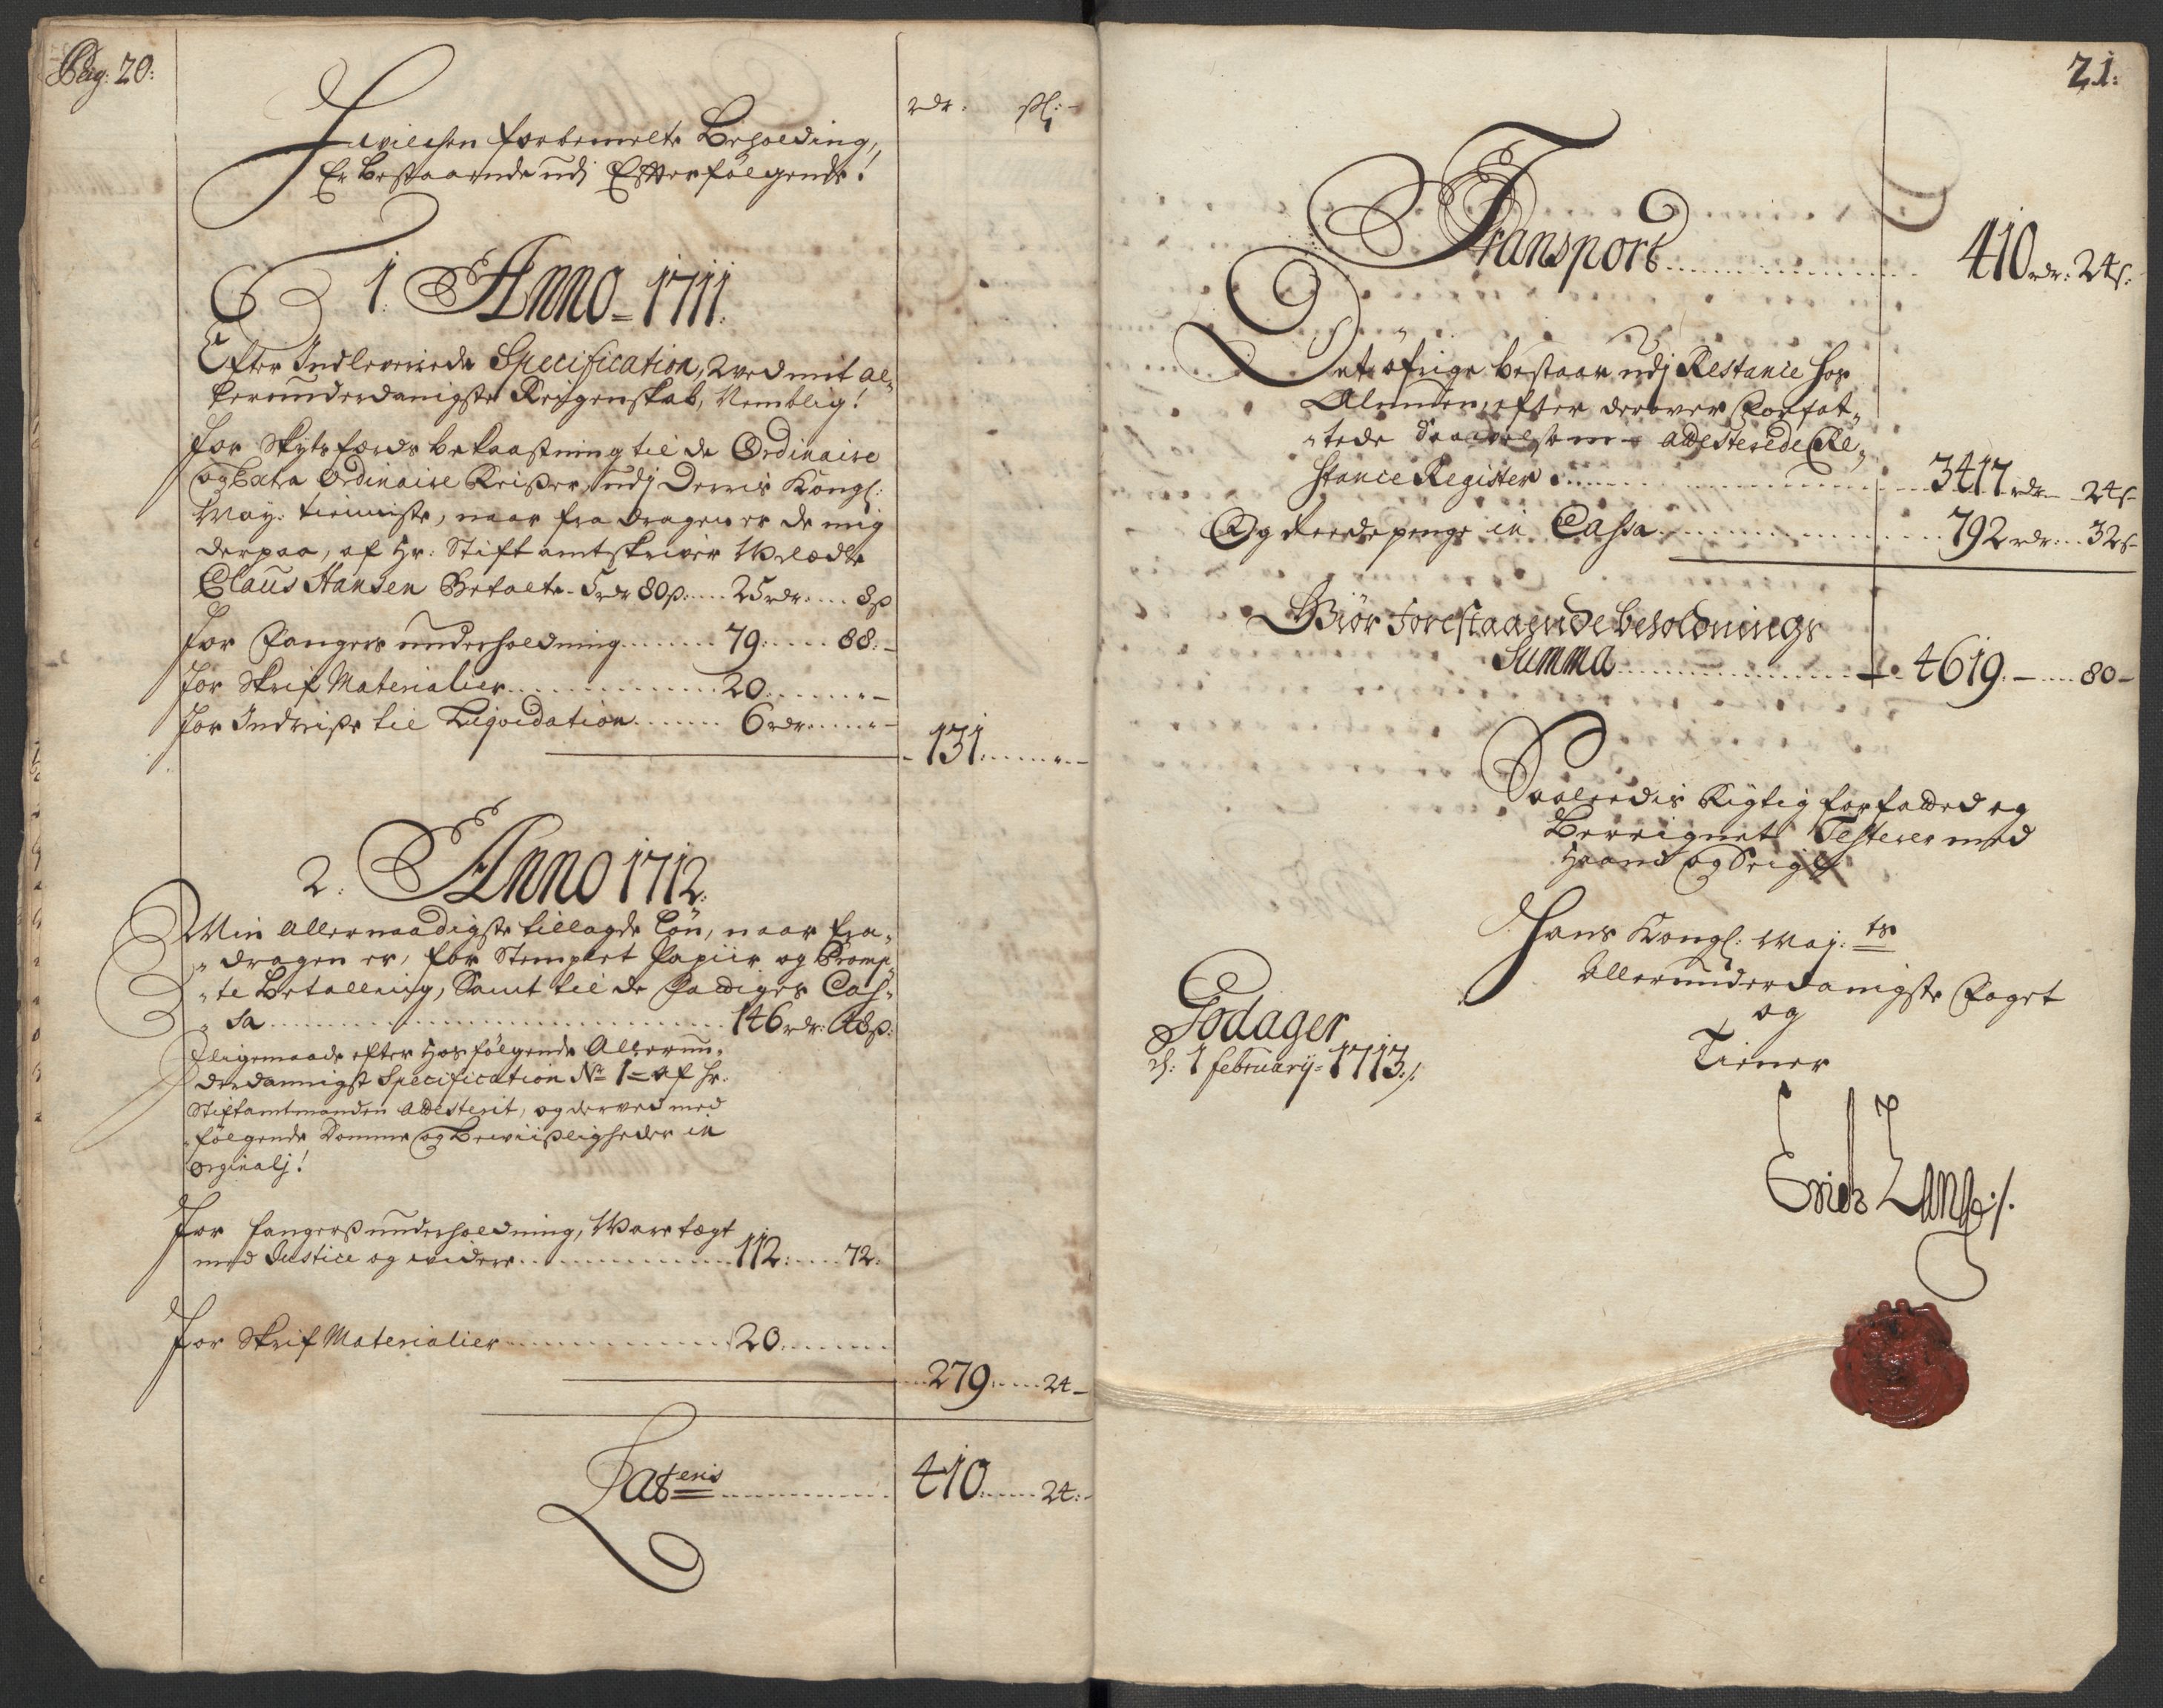 Pag: 20:
rdr: sl:
Hvilchen forbemelte Beholding,
Er Bestaaende udj Efterfölgende!
1. Anno = 1711.
Efter Indleverede Specification, med mit al-
lerunderdanigste Reigenskab, Nemblig!
for Skytsfærds bekaastning til de Ordinaire
og Extra Ordinaire Reiser, udj Deris Kongl:
May: tienniste, naar fra dragen er de mig
derpaa, af Hr: Stiftamtskriver Velædle
Claus Hansen Betalte - 5 rdr 80 s: .... 25 rdr: ... 8 s
for Fangers underholdning ........ 79: ..... 88: -
for Skrif Materialier .............. 20: ....... -
for Indreise til Liqvidation ....... 6 rdr: ..... -
- 131: ....... -
2. Anno 1712.
Min Allernaadigste tillagde Lön, naar fra-
" dragen er, for Stemplet Papiir og Promp-
" te Betallning, Samt til de Fattiges Cas-
" sa .............................. 146 rdr: 48 s:
Ligemaade efter Hosfölgende Allerun-
derdannigst Specification No 1 = af Hr.
Stiftamtmanden Attesterit, og derved med
fölgende Domme og Beviisligheder in
Orginalj!
for fangers underholdning, Varetægt
med Justice og videre .............. 112: ..... 72:
for Skrif Materialier ................ 20: .......
.. 279: .... 24 -
Lateris ............. 410: ..... 24: -
21:
Transport .................. 410 rdr: 24 s:
Det öfrige bestaar udj Restance hos
Almuen, efter derover Forfat-
" tede Saavelsom Attesterede Re-
stance Register: .................. 3417 rdr - 24 s -
Og Reede penge in Cassa ................ 792 rdr: .. 32 s -
Giör forestaaende beholdnings
Summa ................. 4619. - .... 80 -
Saaledis Rigtig forfatted og
Beregnet Testerer med
Haand og Seigl
Hans Kongl: May: ts
Allerunderdanigste Foget
og
Tiener
Godager
d: 1 february = 1713 ./.
Erich Lange ./.